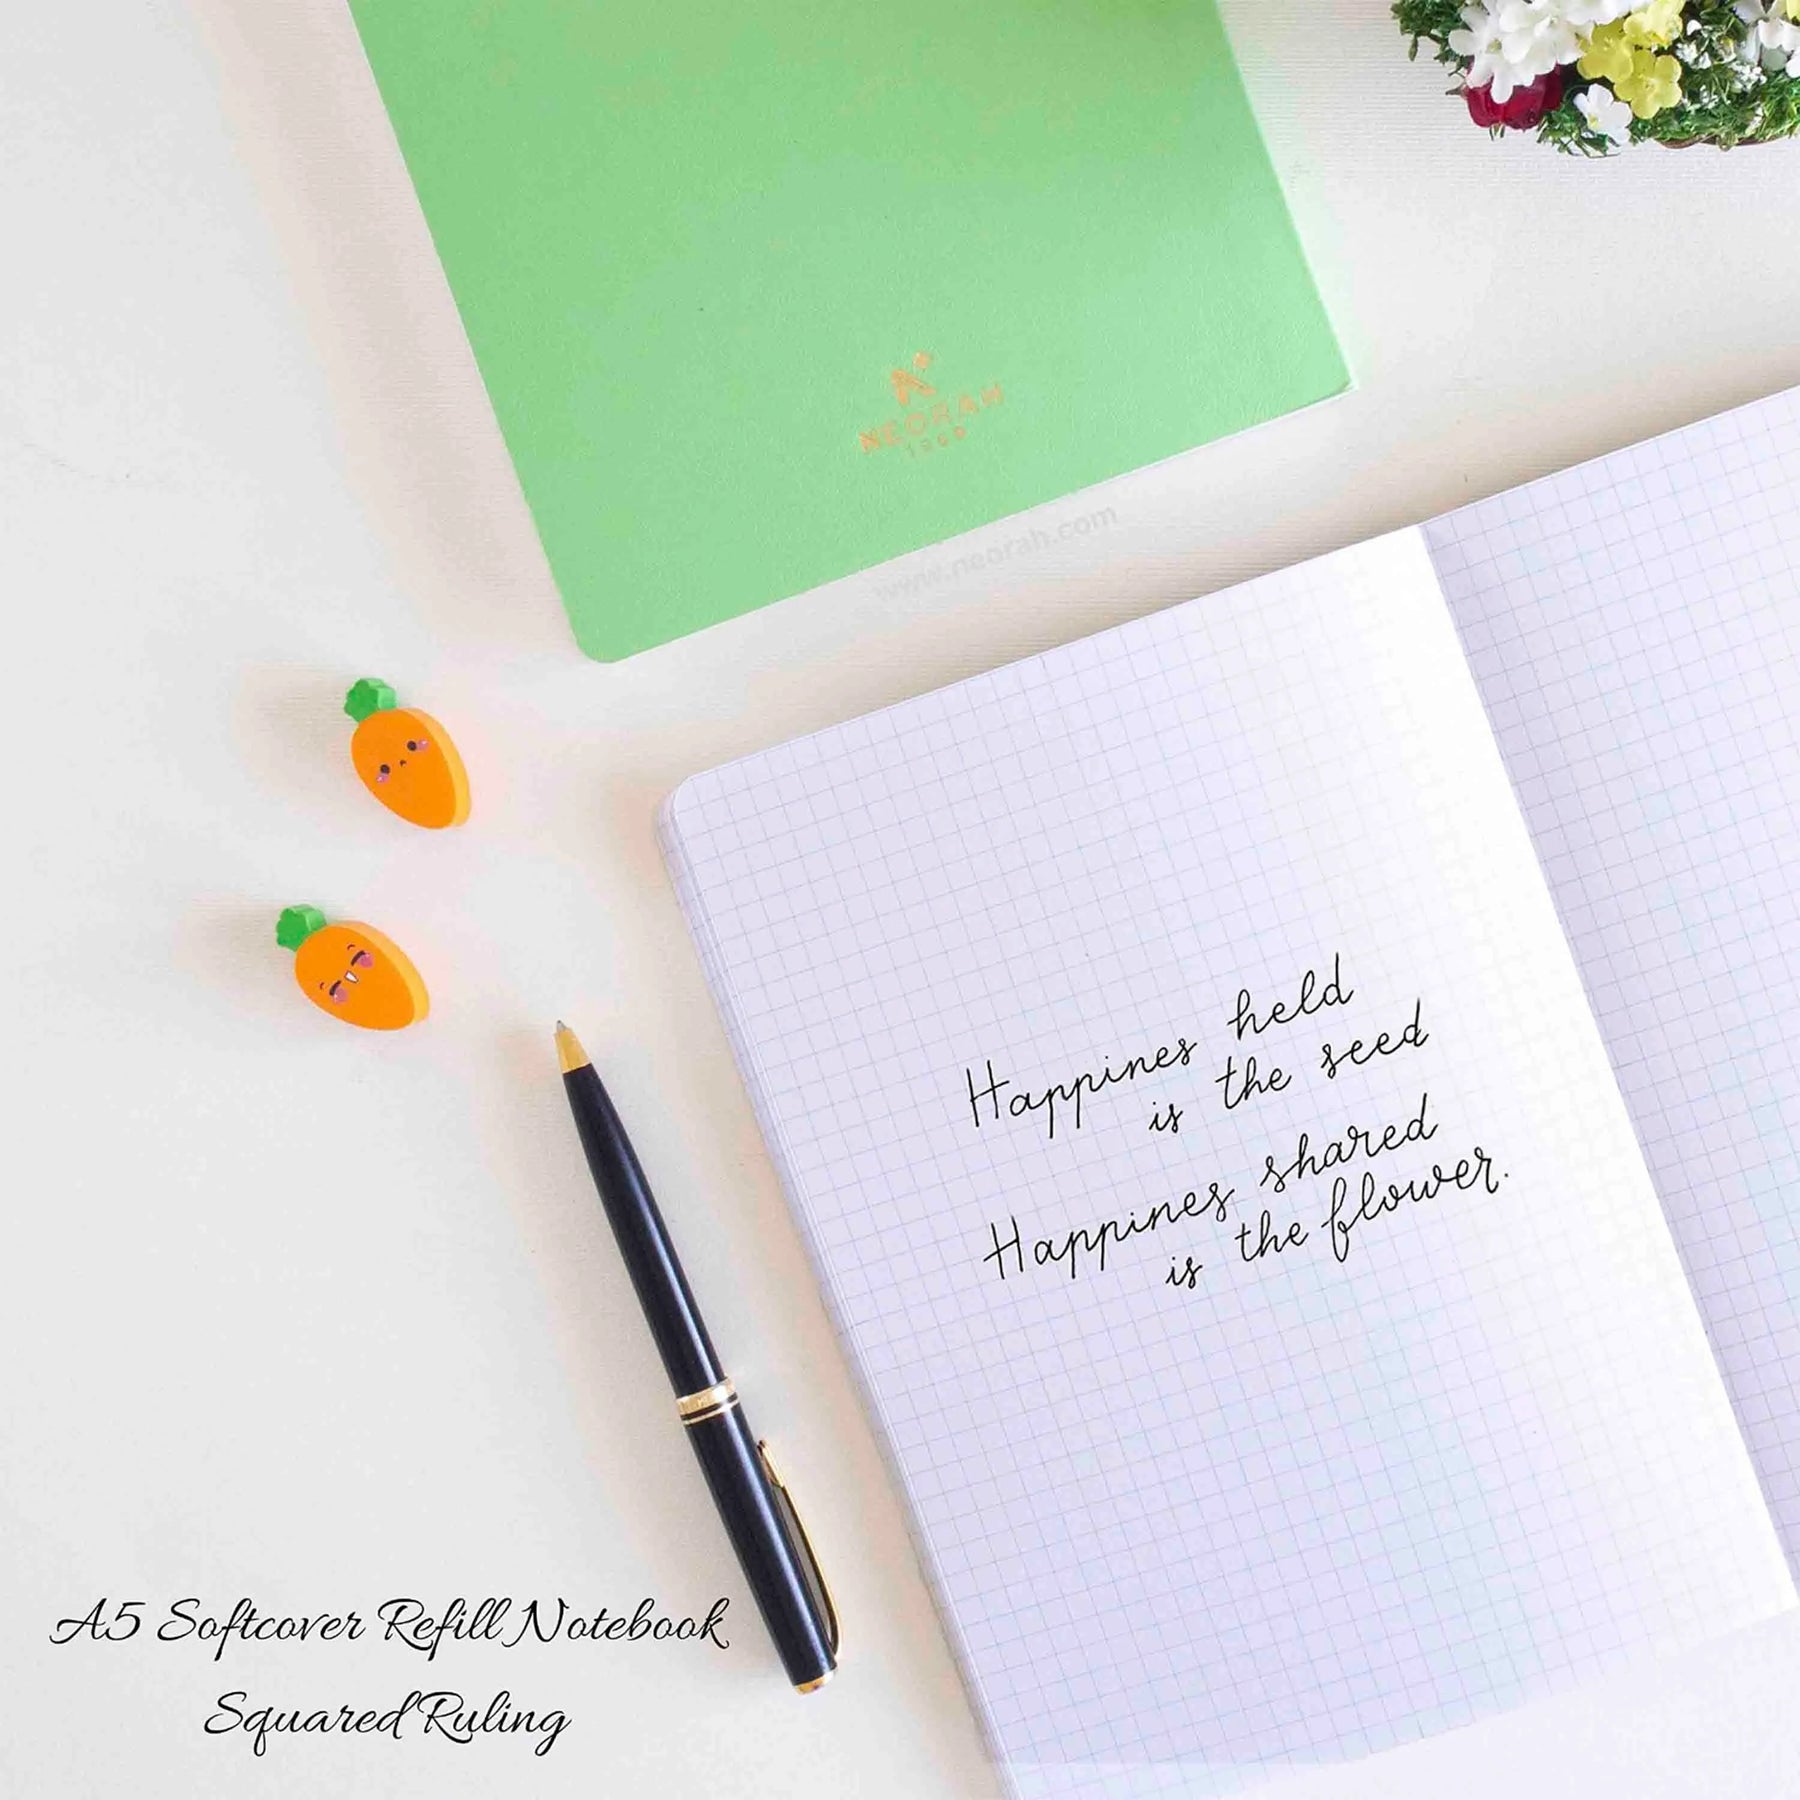 NEORAH
www.neorah.com
Happines held
is the seed
Happines shared
is the flower.
A5 Softcover Refill Notebook
Squared Ruling